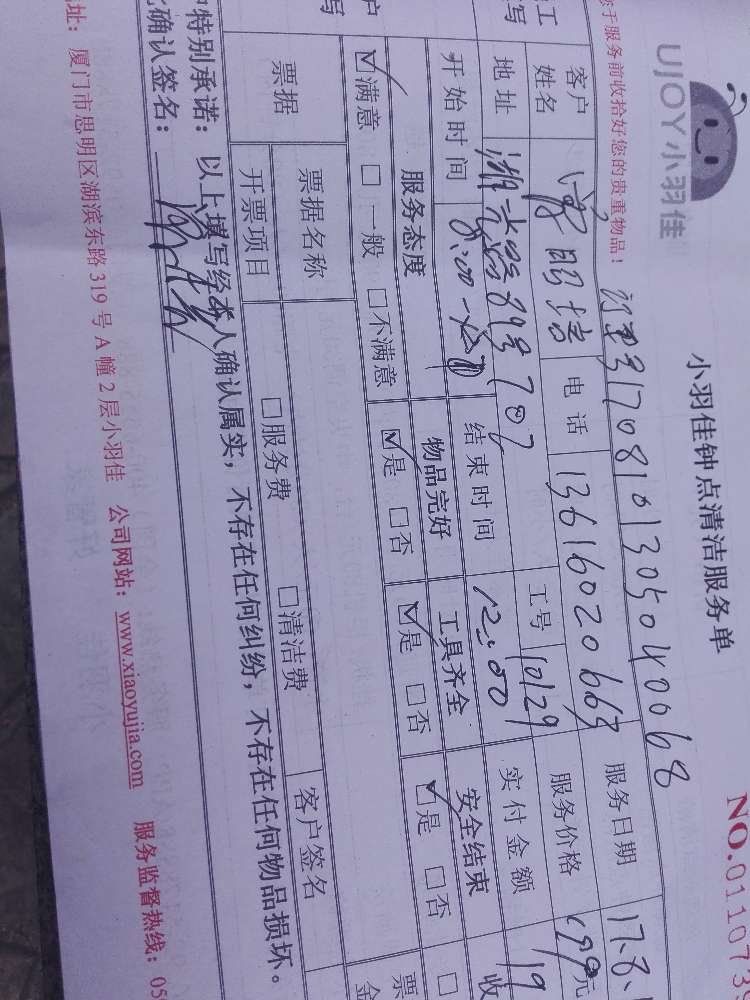 UJOY小羽佳
小羽佳钟点清洁服务单
NO.0110739
您于服务前收拾好您的贵重物品！
订单号1708101305040068
客户姓名 电话 13616020663 服务日期 17.8.
地址 89号707 工号 10129 服务价格 199元
开始时间 8:00 结束时间 12:00 实付金额 19
服务态度 物品完好 工具齐全 安全结束
☑满意 □一般 □不满意 ☑是 □否 ☑是 □否 ☑是 □否
票据 票据名称 客户签名
开票项目 □服务费 □清洁费
特别承诺：以上填写经本人确认属实，不存在任何纠纷，不存在任何物品损坏。
确认签名：
址：厦门市思明区湖滨东路319号A幢2层小羽佳 公司网站：www.xiaoyujia.com 服务监督热线：05